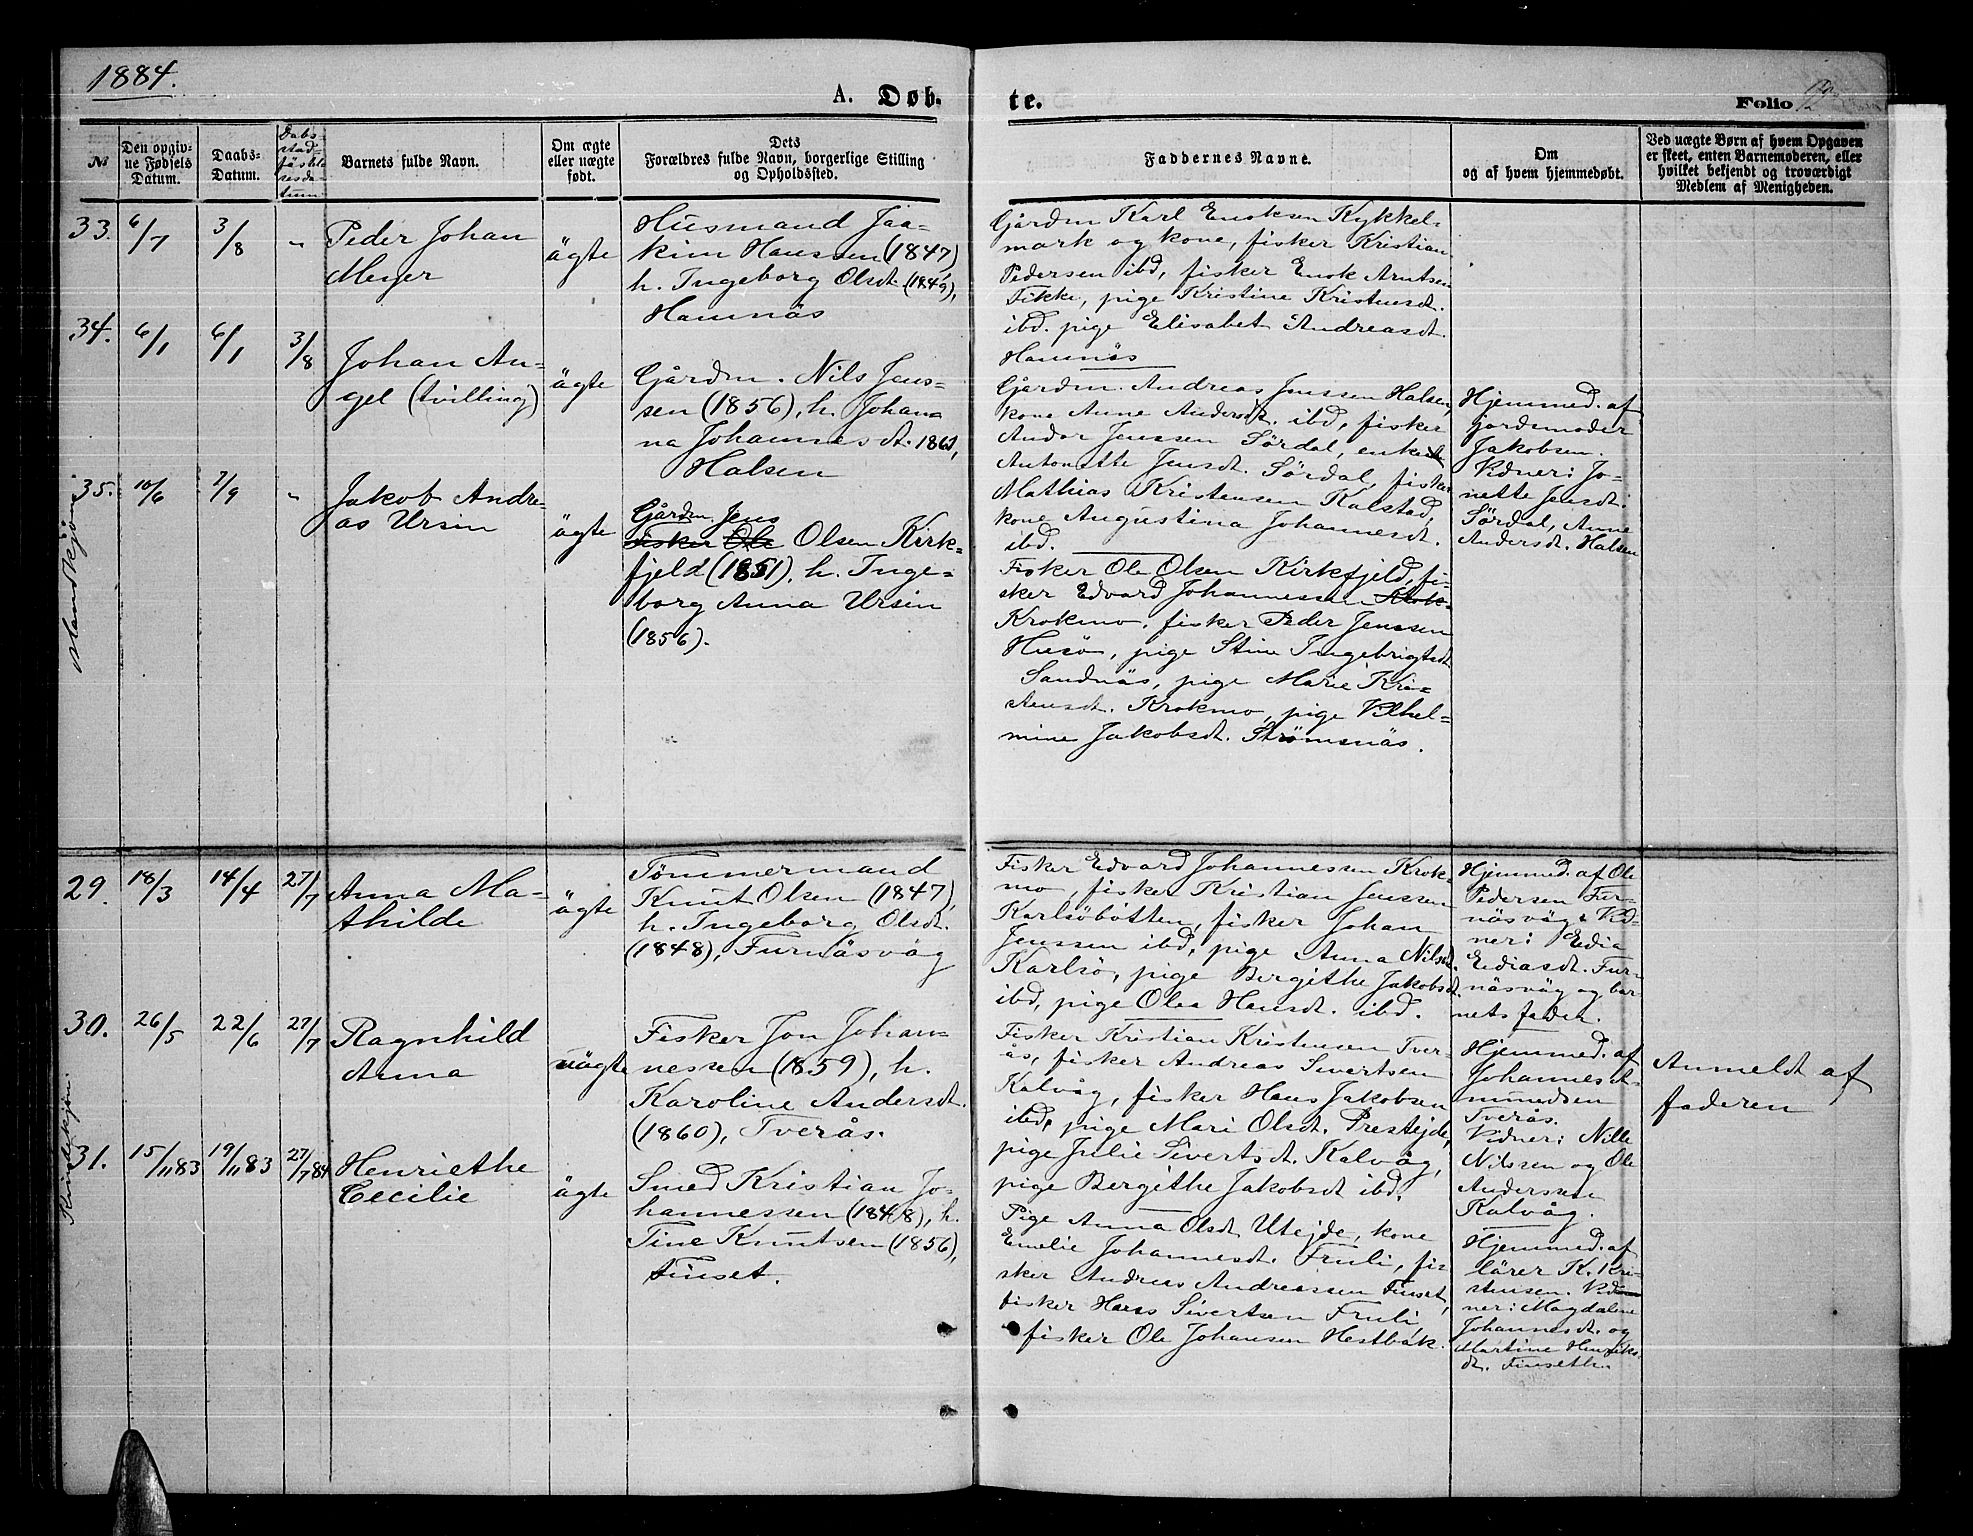 1884.
A. Døb.
te.
Folio 12
№
Den opgiv-
ne Fødsels
Datum.
Daabs-
Datum.
Dabs-
stad-
fästel-
sesda-
tum
Barnets fulde Navn.
Om ægte
eller uægte
født.
Dets
Forældres fulde Navn, borgerlige Stilling
og Opholdssted.
Faddernes Navne.
Om
og af hvem hjemmedøbt.
Ved uægte Børn af hvem Opgaven
er skeet, enten Barnemoderen, eller
hvilket bekjendt og troværdigt
Medlem af Menigheden.
Mandkjøn
33.
6/7
3/8
"
Peder Johan
Meyer
ägte
Husmand Joa-
kim Hanssen (1847)
h. Ingeborg Olsdt. (1849),
Hamnäs
Gårdm Karl Enoksen Kykkel-
mark og kone, fisker Kristian
Pedersen ibd, fisker Enok Arntsen
Fikke, pige Kristine Kristensdt.
ibd. pige Elisabet Andreasdt.
Hamnäs
34.
6/1
6/1
3/8
Johan An-
gel (tvilling)
ägte
Gårdm. Nils Jens-
sen (1856), h. Johan-
na Johannesdt. 1861,
Halsen
Gårdm. Andreas Jenssen Halsen,
kone Anne Andersdt. ibd, fisker
Andor Jenssen Sördal, enke
Antonette Jensdt. Sördal, fisker
Mathias Kristensen Kalstad,
kone Augustina Johannesdt.
ibd.
Hjemmed. af
jordemoder
Jakobsen.
Vidner: Jo-
nette Jensdt.
Sördal, Anne
Andersdt. Halsen
35.
10/6
7/9
"
Jakob Andre-
as Ursin
ägte
Gårdm. Jens
Fisker Ole Olsen Kirk-
fjeld (1851), h. Inge-
borg Anna Ursin
(1856).
Fisker Ole Olsen Kirkfjeld, fi-
sker Edvard Johannessen Krok-
Krokmo, fisker Peder Jenssen
Husö, pige Stine Ingebrigtsdt
Sandnäs, pige Marie Kri-
stensdt. Krokmo, pige Vilhel-
mine Jakobsdt. Strömsnäs.
Kvindekjøn.
29.
18/3
14/4
27/7
Anna Ma-
thilde
ägte
Tömmermand
Knut Olsen (1847),
h. Ingeborg Olsdt.
(1848), Furnäsvåg
Fisker Edvard Johannessen Krok-
mo, fisker Kristian Jenssen
Karlsöbötten, fisker Johan
Jenssen ibd, pige Anna Nilsdt.
Karlsö, pige Bergithe Jakobsdt.
ibd, pige Olea Hansdt. ibd.
Hjemmed. af Ole
Pedersen Fur-
näsvåg. Vid-
ner: Edia
Ediasdt. Fur-
näsvåg og bar-
nets fader.
30.
26/5
22/6
27/7
Ragnhild
Anna
uägte
Fisker Jon Johan-
nessen (1859), h.
Karoline Andersdt.
(1860), Tverås.
Fisker Kristian Kristensen Tver-
ås, fisker Andreas Sivertsen
Kalvåg, fisker Hans Jakobsen
ibd, pige Mari Olsdt. Prestejde,
pige Julie Sivertsdt. Kalvåg,
pige Bergithe Jakobsdt ibd.
Hjemmed. af
Johannes A-
mundsen
Tverås.
Vidner: Nille
Nilssen og Ole
Anderssen
Kalvåg.
Anmeldt af
faderen
31.
15/11 83
19/11 83
27/7 84
Henriethe
Cecilie
ägte
Smed Kristian Jo-
hannessen (1848), h.
Tine Knutsen (1856),
Finset.
Pige Anna Olsdt Utejde, kone
Emelie Johannesdt. Fruli, fi-
sker Andreas Andreassen Finset,
fisker Hans Sivertsen Fruli,
fisker Ole Johansen Hestbäk.
Hjemmed. af
lärer K. Kri-
stensen. Vid-
ner: Magdalene
Johannesdt. og
Martine Henriks-
dt. Finseth.